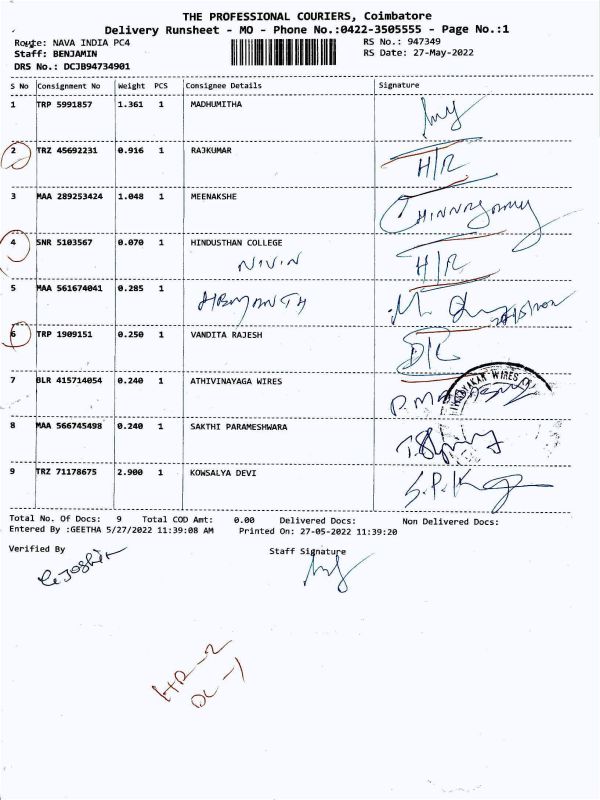 THE PROFESSIONAL COURIERS, Coimbatore
Delivery Runsheet - MO - Phone No.:0422-3505555 - Page No.:1
Route: NAVA INDIA PC4 RS No.: 947349
Staff: BENJAMIN RS Date: 27-May-2022
DRS No.: DCJB94734901
S No Consignment No Weight PCS Consignee Details Signature
1 TRP 5991857 1.361 1 MADHUMITHA
2 TRZ 45692231 0.916 1 RAJKUMAR H/R
3 MAA 289253424 1.048 1 MEENAKSHE
4 SNR 5103567 0.070 1 HINDUSTHAN COLLEGE H/R
NIVIN
5 MAA 561674041 0.285 1
6 TRP 1909151 0.250 1 VANDITA RAJESH
7 BLR 415714054 0.240 1 ATHIVINAYAGA WIRES
8 MAA 566745498 0.240 1 SAKTHI PARAMESHWARA
9 TRZ 71178675 2.900 1 KOWSALYA DEVI
Total No. Of Docs: 9 Total COD Amt: 0.00 Delivered Docs: Non Delivered Docs:
Entered By :GEETHA 5/27/2022 11:39:08 AM Printed On: 27-05-2022 11:39:20
Verified By Staff Signature
HR-2
DL-1